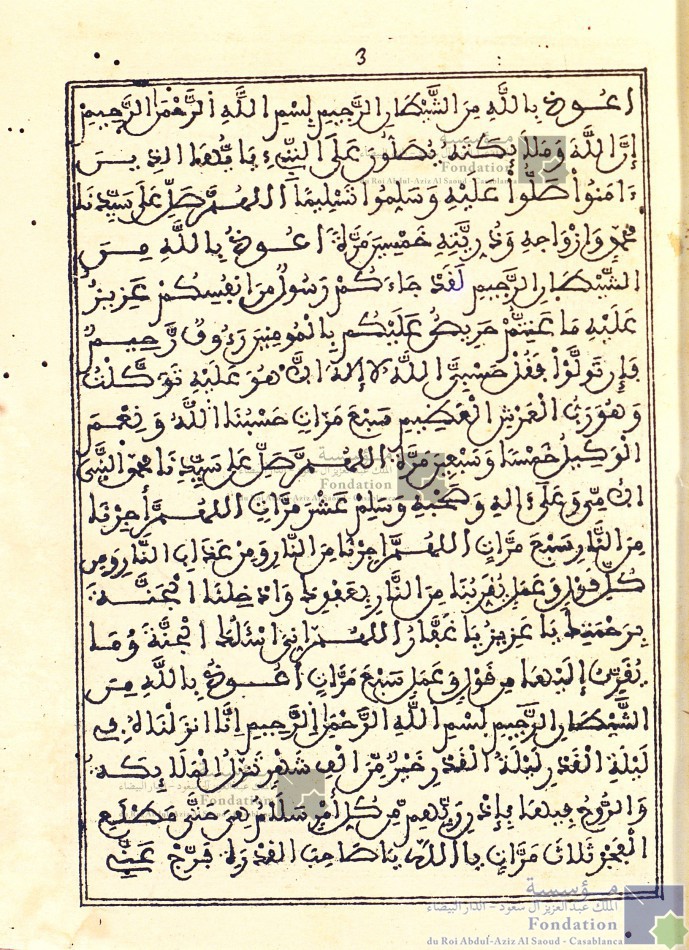 3
اعوذ بالله من الشيطان الرجيم بسم الله الرحمن الرحيم
إن الله وملائكته يصلون على النبيء يا أيها الذين
ءامنوا صلوا عليه وسلموا تسليما اللهم صل على سيدنا
محمد وازواجه وذريته خمسين مرة اعوذ بالله من
الشيطان الرجيم لقد جاءكم رسول من انفسكم عزيز
عليه ما عنتم حريص عليكم بالمومنين رءوف رحيم
فإن تولوا فقل حسبي الله لا إله الا هو عليه توكلت
وهو رب العرش العظيم سبع مرات حسبنا الله ونعم
الوكيل خمسا وسبعين مرة اللهم صل على سيدنا محمد النبي
الامي وعلى ءاله وصحبه وسلم عشر مرات اللهم أجرنا
من النار سبع مرات اللهم اجرنا من النار ومن عذاب النار ومن
كل قول وعمل يقربنا من النار بعفوك وادخلنا الجنة
برحمتك يا عزيز يا غفار اللهم إني اسئلك الجنة وما
يقرب إليها من قول وعمل سبع مرات اعوذ بالله من
الشيطان الرجيم بسم الله الرحمن الرحيم إنا انزلناه في
ليلة القدر ليلة القدر خير من الف شهر تنزل الملائكة
والروح فيها بإذن ربهم من كل أمر سلام هي حتى مطلع
الفجر ثلاث مرات يا الله يا صاحب القدرة فرج عني
مؤسسة
الملك عبد العزيز آل سعود - الدار البيضاء
Fondation
du Roi Abdul-Aziz Al Saoud - Casablanca